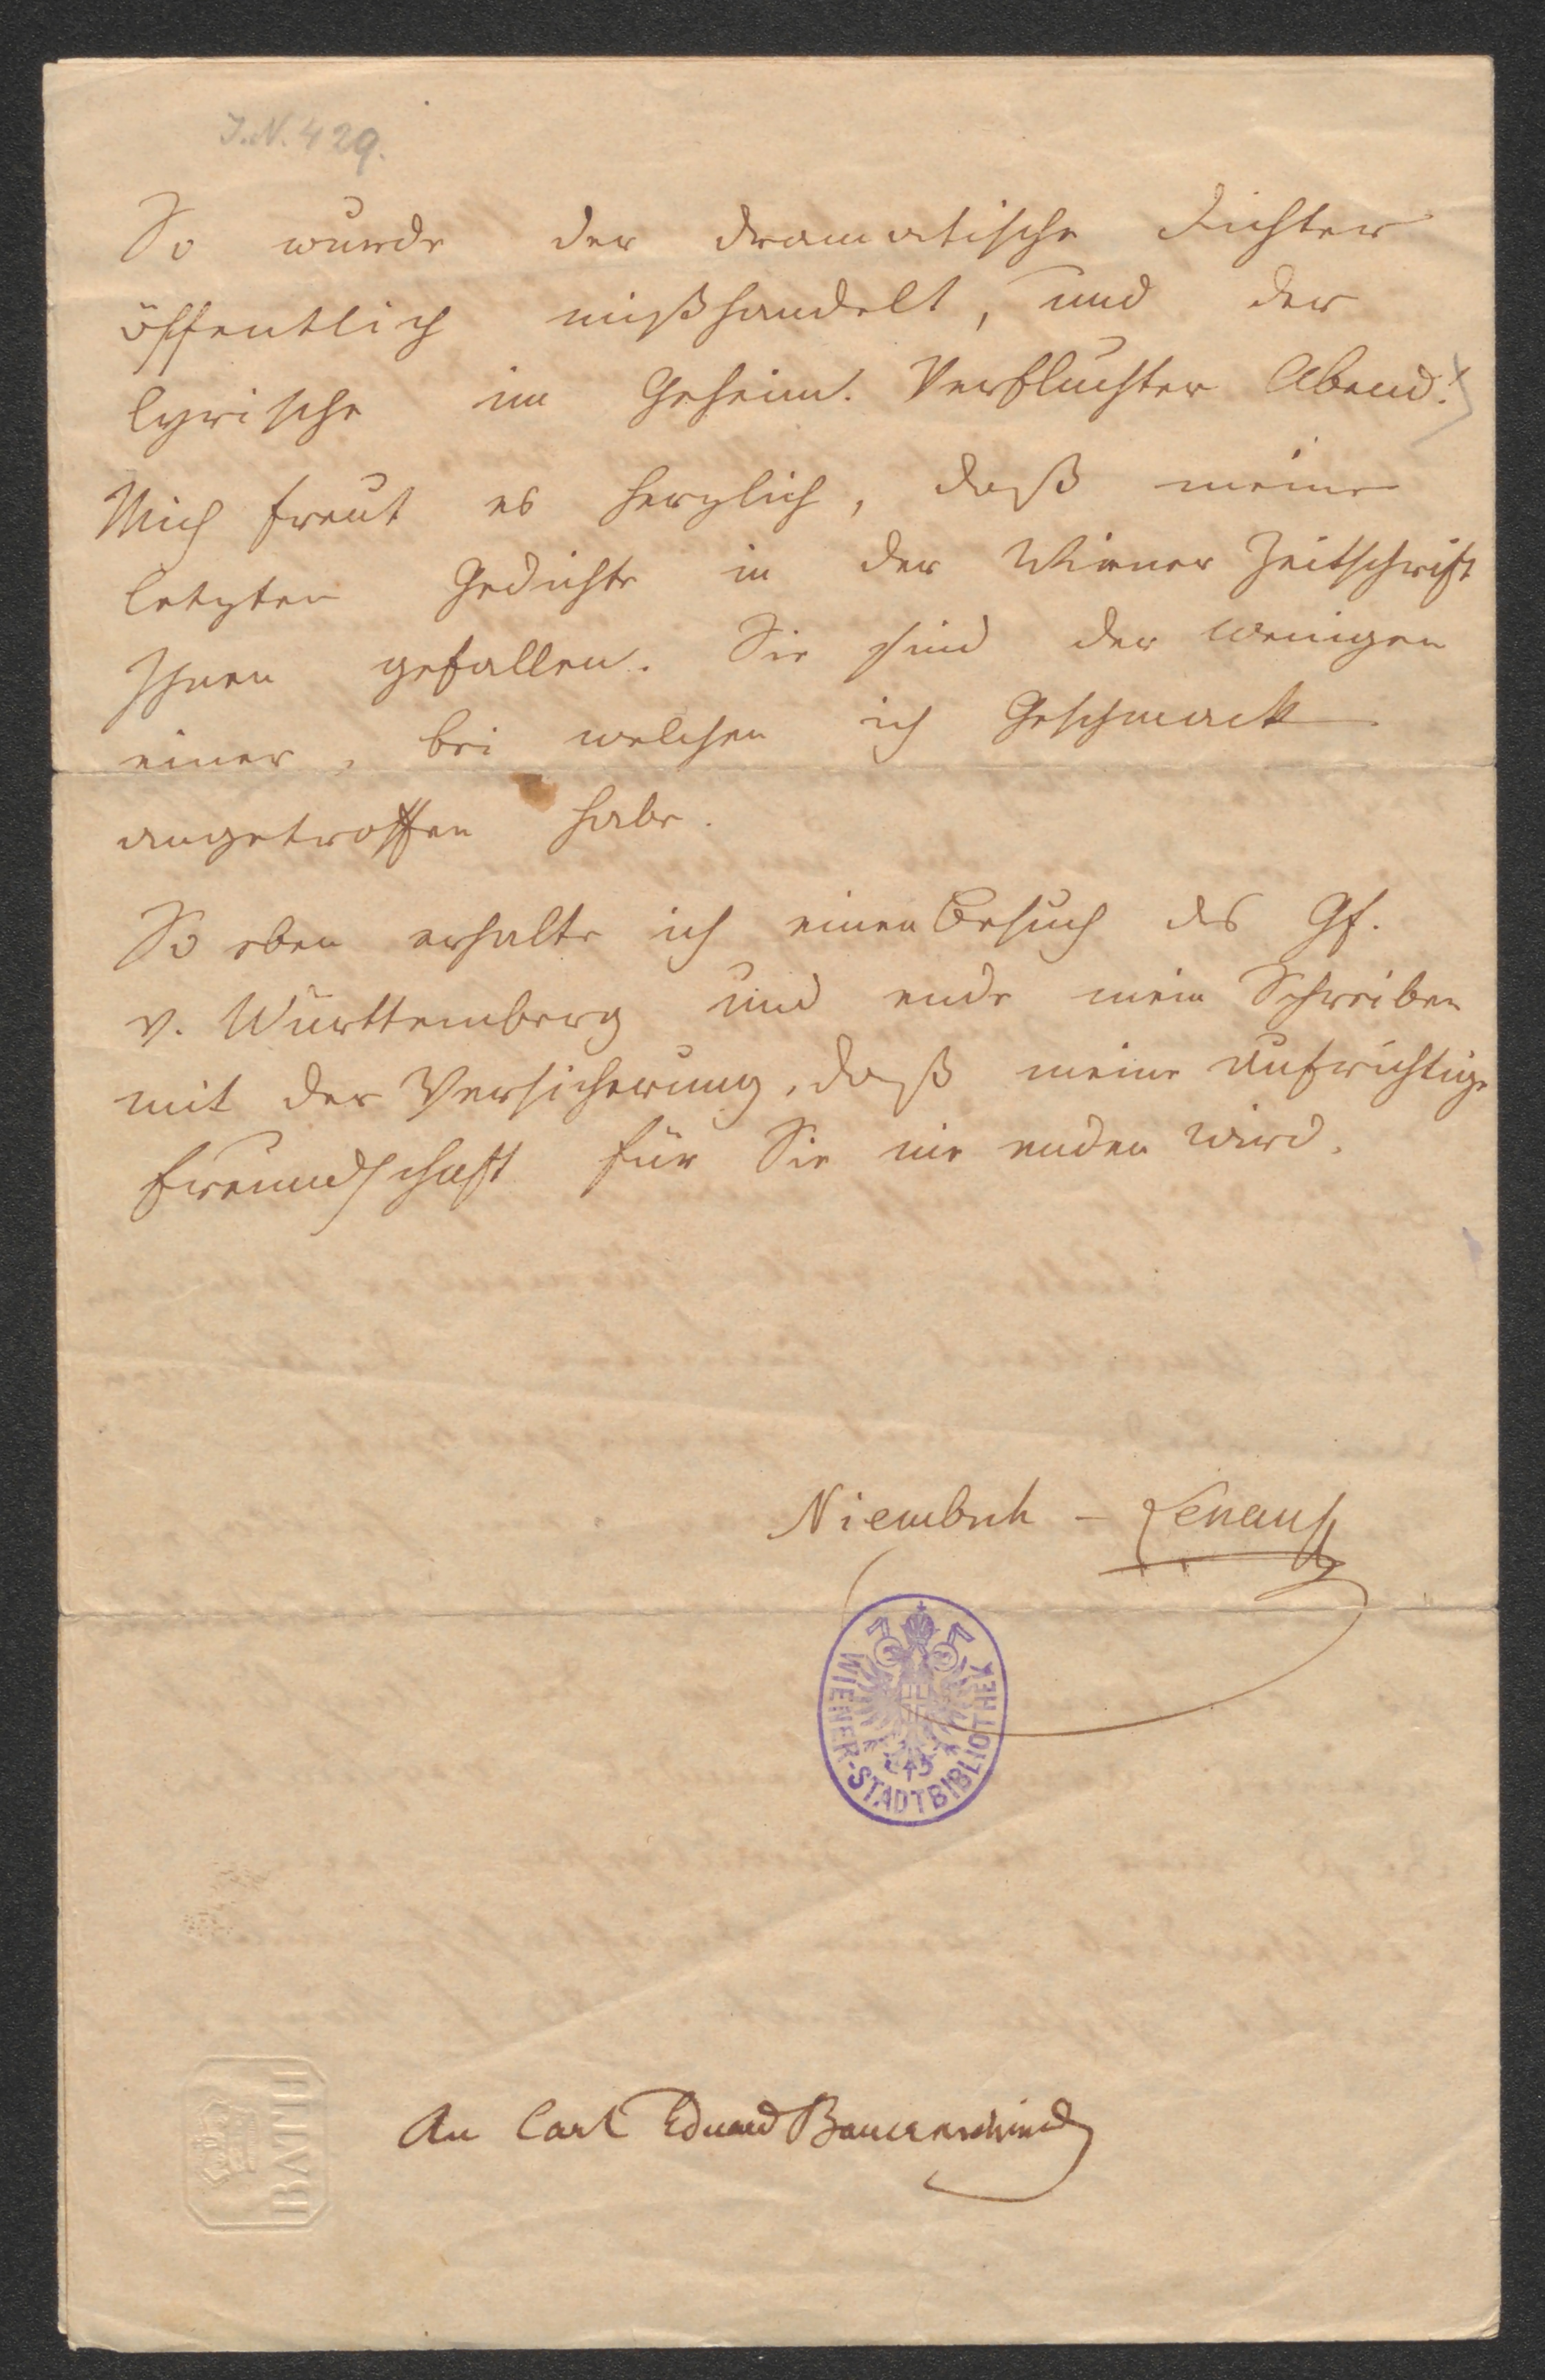 J.N. 429.
So wurde der dramatische Dichter
öffentlich mißhandelt, und der
lyrische im Geheim. Verfluchter Abend!
Mich freut es herzlich, daß meine
letzten Gedichte in der Wiener Zeitschrift
Ihnen gefallen. Sie sind der wenigen
einer, bei welchen ich Geschmack
angetroffen habe.
So eben erhalte ich einen Besuch des Gf.
v. Württemberg und ende mein Schreiben
mit der Versicherung, daß meine aufrichtige
Freundschaft für Sie nie enden wird.
Niembsch - Lenau
WIENER-STADTBIBLIOTHEK
BATH
An Carl Eduard Bauernschmid